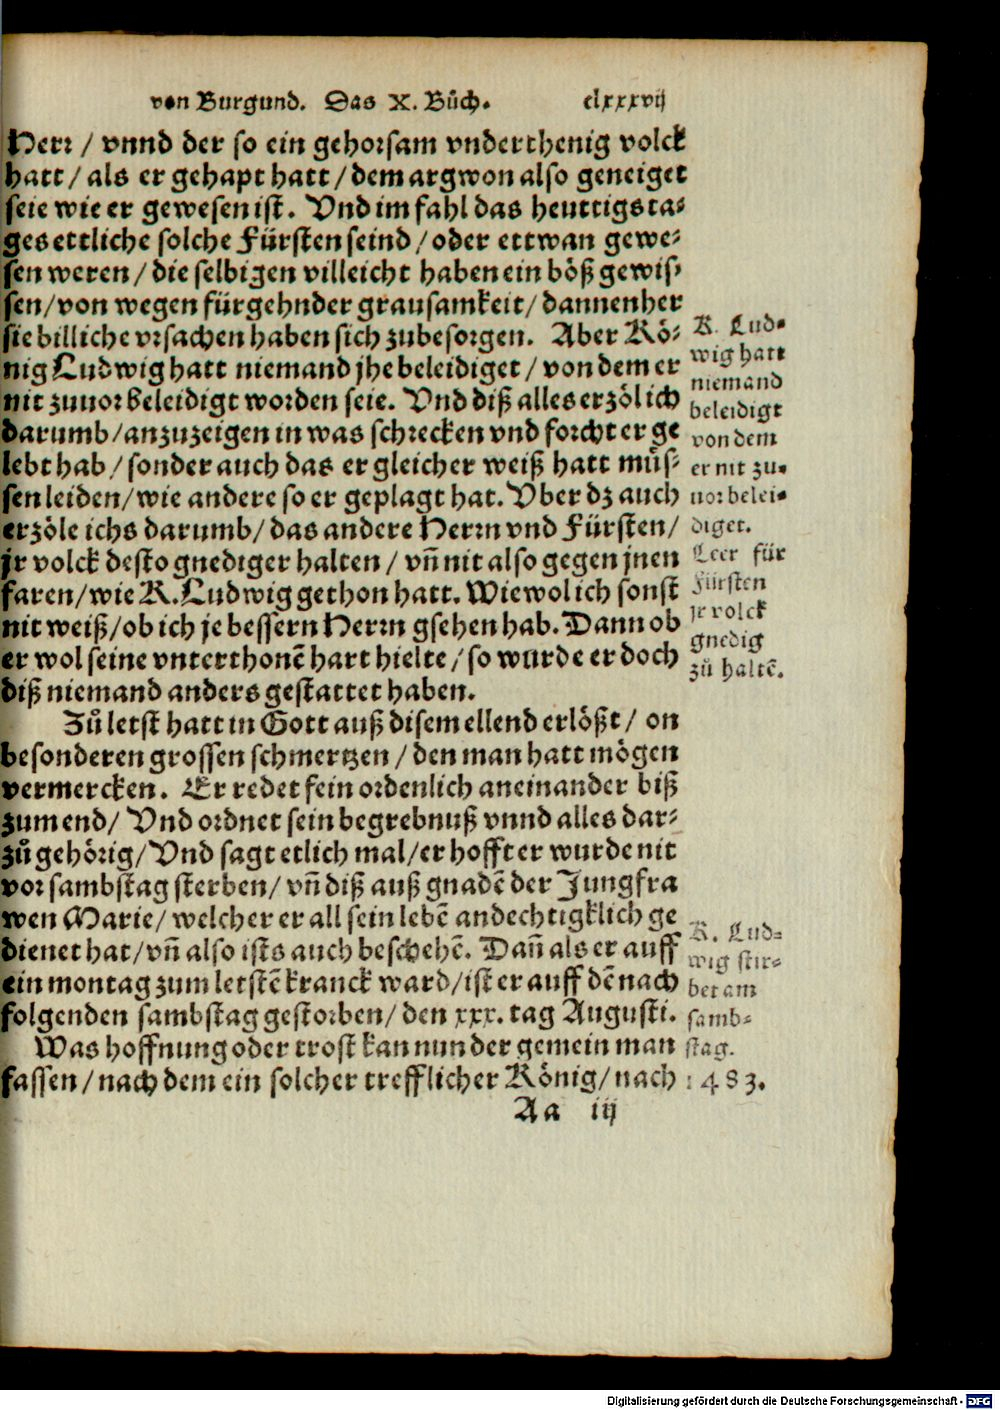 von Burgund. Das X. Bůch. clxxxvij
Herr / vnnd der so ein gehorsam vnderthenig volck
hatt / als er gehapt hatt / dem argwon also geneiget
seie wie er gewesen ist. Vnd im fahl das heuttigs ta-
ges ettliche solche Fürsten seind / oder ettwan gewe-
sen weren / die selbigen villeicht haben ein böß gewis-
sen / von wegen fürgehnder grausamkeit / dannenher
sie billiche vrsachen haben sich zubesorgen. Aber Kö-
nig Ludwig hatt niemand jhe beleidiget / von dem er
nit zuuor beleidigt worden seie. Vnd diß alles erzöl ich
darumb / anzuzeigen in was schrecken vnd forcht er ge
lebt hab / sonder auch das er gleicher weiß hatt müs-
sen leiden / wie andere so er geplagt hat. Vber dz auch
erzöle ichs darumb / das andere Herrn vnd Fürsten /
jr volck desto gnediger halten / vñ nit also gegen jnen
faren / wie K. Ludwig gethon hatt. Wiewol ich sonst
nit weiß / ob ich je bessern Herrn gsehen hab. Dann ob
er wol seine vnterthonē hart hielte / so wurde er doch
diß niemand anders gestattet haben.
Zů letst hatt in Gott auß disem ellend erlößt / on
besonderen grossen schmertzen / den man hatt mögen
vermercken. Er redet fein ordenlich aneinander biß
zum end / Vnd ordnet sein begrebnuß vnnd alles dar-
zů gehörig / Vnd sagt etlich mal / er hofft er wurde nit
vor sambstag sterben / vñ diß auß gnadē der Jungfra
wen Marie / welcher er all sein lebē andechtigklich ge
dienet hat / vñ also ists auch beschehē. Dañ als er auff
ein montag zum letstē kranck ward / ist er auff dē nach
folgenden sambstag gestorben / den xxx. tag Augusti.
Was hoffnung oder trost kan nun der gemein man
fassen / nach dem ein solcher trefflicher König / nach
Aa iij
K. Lud-
wig hatt
niemand
beleidigt
von dem
er nit zu-
uor belei-
diget.
Leer für
Fürsten
jr volck
gnedig
zů haltē.
K. Lud-
wig stir-
bet am
samb-
stag.
1483.
Digitalisierung gefördert durch die Deutsche Forschungsgemeinschaft - DFG